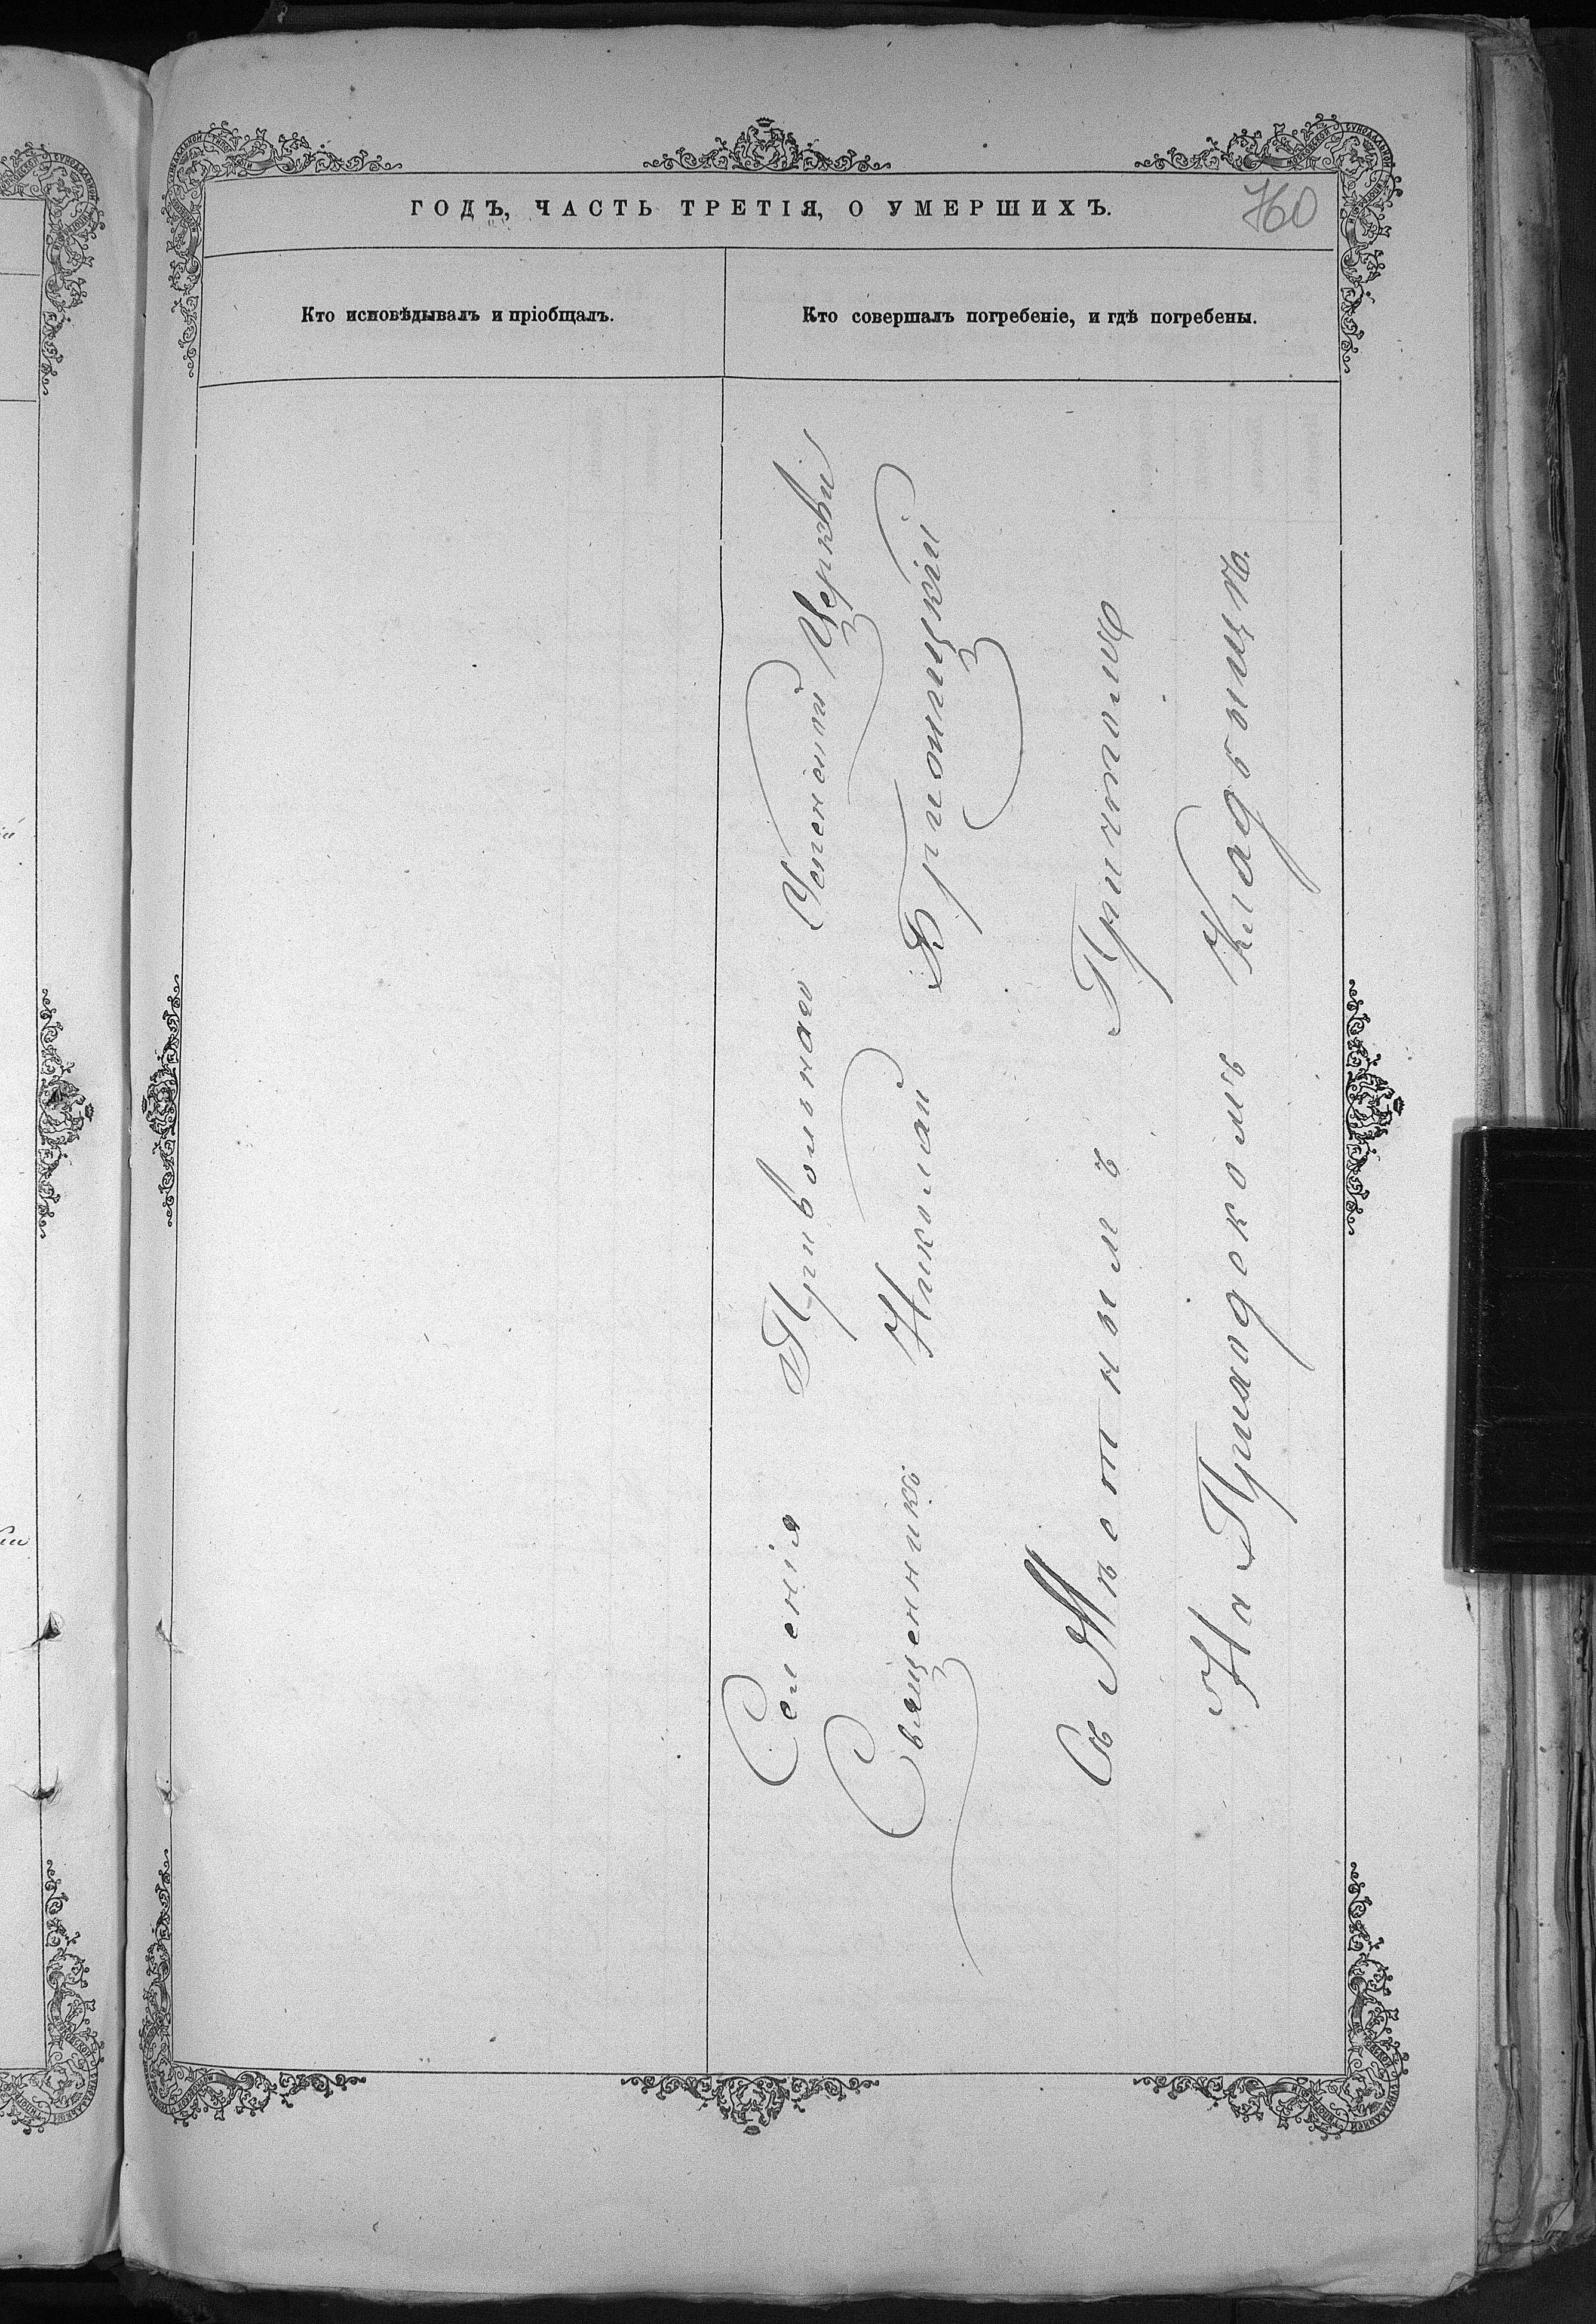 ГОДЪ, ЧАСТЬ ТРЕТІЯ, О УМЕРШИХЪ.
760
Кто исповѣдывалъ и пріобщалъ.
Кто совершалъ погребеніе, и гдѣ погребены.
Селенія Привольнаго Успенской Церкви
Священникъ Николай
Съ Мѣстнымъ Причтомъ
На Приходскомъ Кладбищѣ.